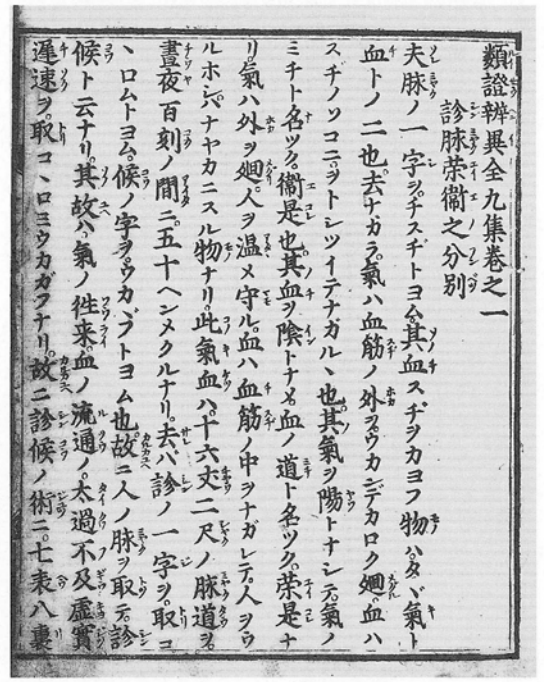 類證辨異全九集巻之一
診脉荣衞之分別
夫脉ノ一字ヲチスヂトヨム其血スヂヲカヨフ物ハタヾ氣ト
血トノ二也去ナガラ氣ハ血筋ノ外ヲウカンデカロク廻血ハ
スヂノソコニヲトシツイテナガルヽ也其氣ヲ陽トナシテ氣ノ
ミチト名ツク衞是也其血ヲ陰トナメ血ノ道ト名ツク荣是ナ
リ氣ハ外ヲ廻人ヲ温メ守ル血ハ血筋ノ中ヲナガレテ人ヲウ
ルホシハナヤカニスル物ナリ此氣血ハ十六丈二尺ノ脉道ヲ
晝夜百刻ノ間ニ五十ヘンメクルナリ去ハ診ノ一字ヲ取コ
ヽロムトヨム候ノ字ヲウカヾフトヨム也故ニ人ノ脉ヲ取テ診
候ト云ナリ其故ハ氣ノ徃来血ノ流通ノ太過不及虚實
遲速ヲ取コヽロミウカガフナリ故ニ診候ノ術ニ七表八裏